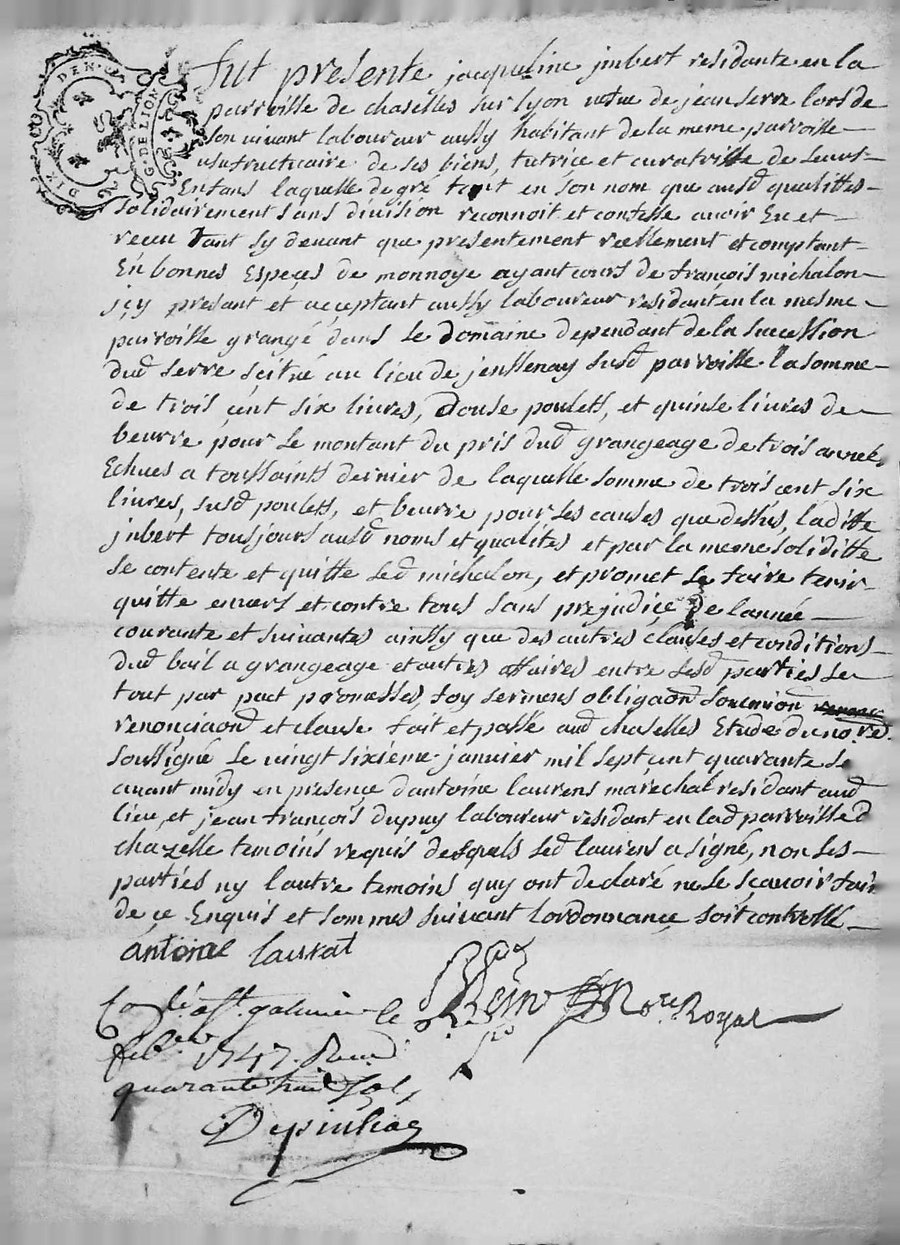 DIX DEN.
G. DE LION
fut presente jacqueline jmbert residante en la
parroisse de chaselles sur lyon vefve de jean serre lors de
son vivant laboureur aussy habitant de la meme parroisse
usufructicaire de ses biens, tutrice et curatrisse de leurs
Enfans laquelle de gré tant en son nom que ausd qualittes
solidairement sans division reconnoit et confesse avoir Eu et
receu tant sy devant que presentement reellement et comptant
En bonnes Espeçes de monnoye ayant cours de françois michalon
jçy presant et acçeptant aussy laboureur residant en la mesme
parroisse grangé dans le domaine dependant de la succession
dud serre scitué au lieu de jenssenay susd parroisse la somme
de trois çent six livres, Douse poulets, et quinse livres de
beurre pour le montant du pris dud grangeage de trois année
Echues a toussaints dernier de laquelle somme de trois çent six
livres, susd poulets, et beurre pour les causes que dessus, laditte
jmbert tousjours ausd noms et qualités et par la meme soliditte
se contente et quitte led michalon, et promet le faire tenir
quitte envers et contre tous sans prejudiçe de l'année
courante et suivantes ainssy que des autres clauses et conditions
dud bail a grangeage et autres affaires entre lesd parties le
tout par pact promesses, foy sermens obligaon soumion
renonciaon et clause fait et passé aud chaselles Etude du no.re
soussigné le vingt sixieme janvier mil sept çent quarante se
avant midy en presence d'antoine laurens marechal residant aud
lieu, et jean françois dupuy laboureur residant en lad parroisse d
chazelle temoins requis desquels led laurens a signé, non les
parties ny l'autre temoins quy ont declaré ne le sçavoir fair
de çe Enquis et sommes suivant l'ordonnançe soit controllé
antoine laurat
No.re Royal
galmier le
feb.er 1747. Reçu
quarante huit sols
Depinhac